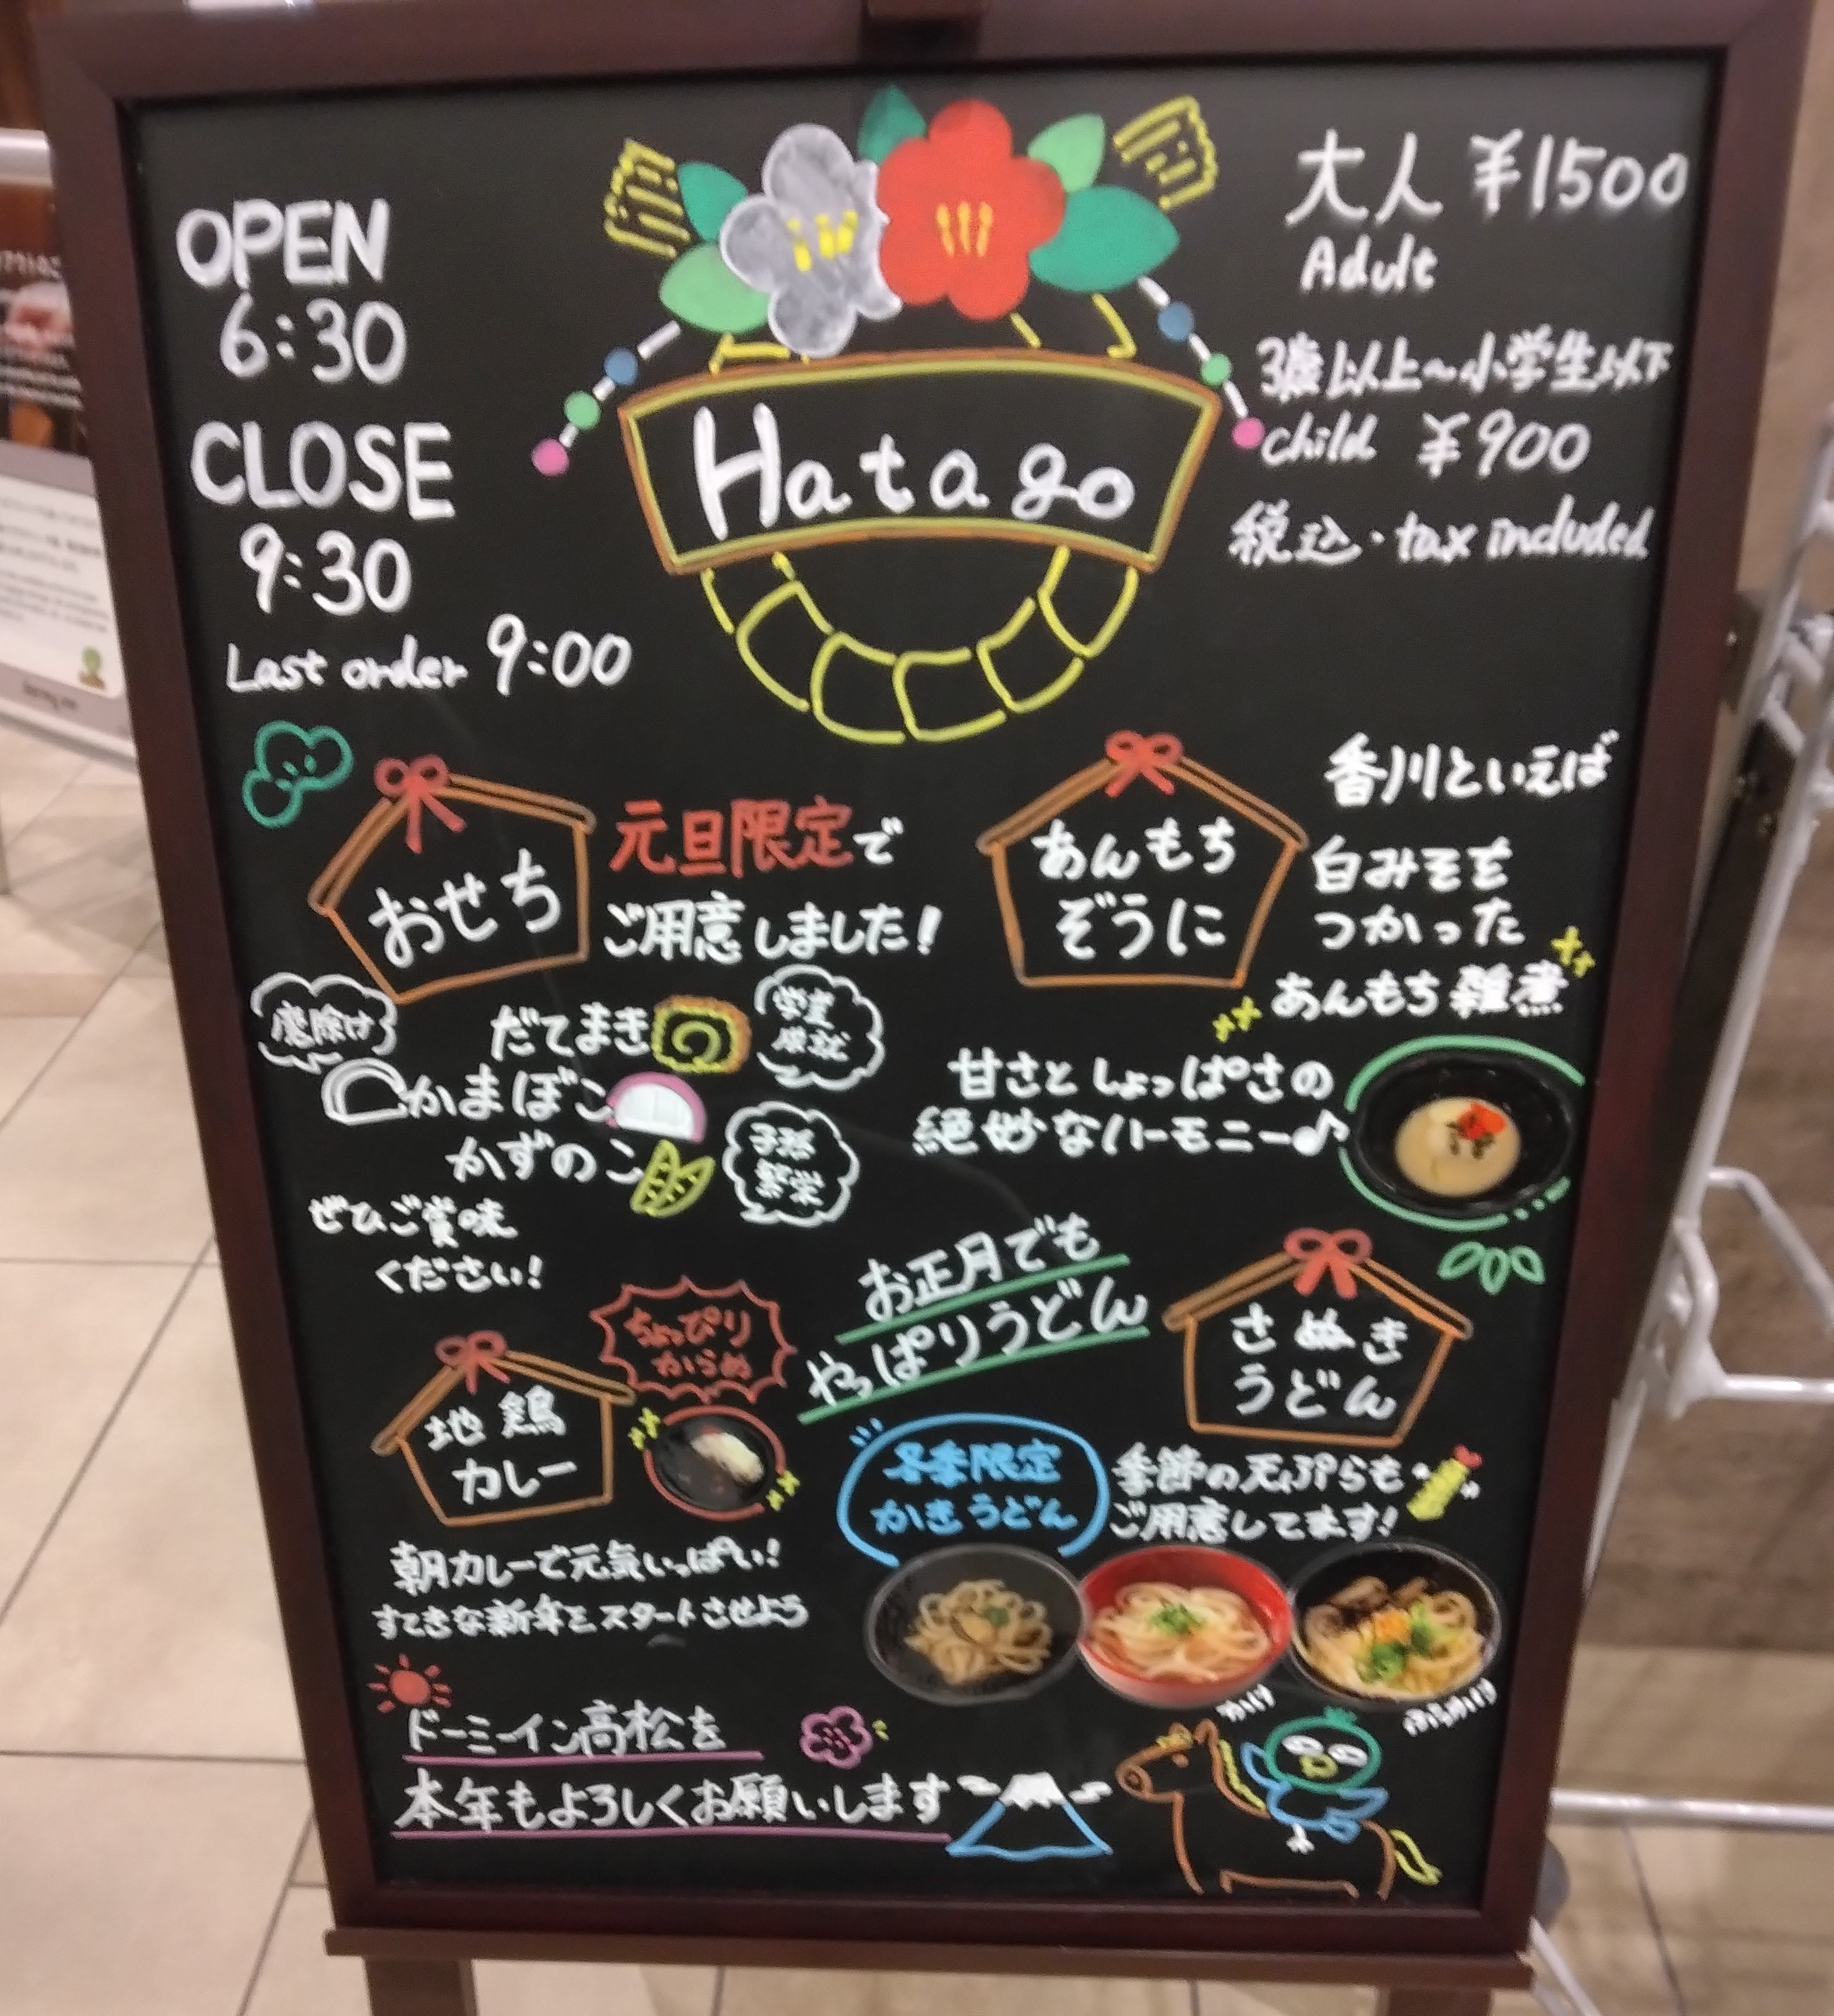 OPEN
6:30
CLOSE
9:30
Last order 9:00
Hatago
大人 ¥1500
Adult
3歳以上~小学生以下
child ¥900
税込・tax included
おせち
元旦限定で
ご用意しました!
魔除け
だてまき
学業
成就
かまぼこ
かずのこ
子孫
繁栄
ぜひご賞味
ください!
あんもち
ぞうに
香川といえば
白みそを
つかった
あんもち雑煮
甘さとしょっぱさの
絶妙なハーモニー♪
お正月でも
やっぱりうどん
さぬき
うどん
ちょっぴり
からめ
地鶏
カレー
朝カレーで元気いっぱい!
すてきな新年をスタートさせよう
冬季限定
かきうどん
季節の天ぷらも
ご用意してます!
かけ
ぶっかけ
ドーミーイン高松を
本年もよろしくお願いします